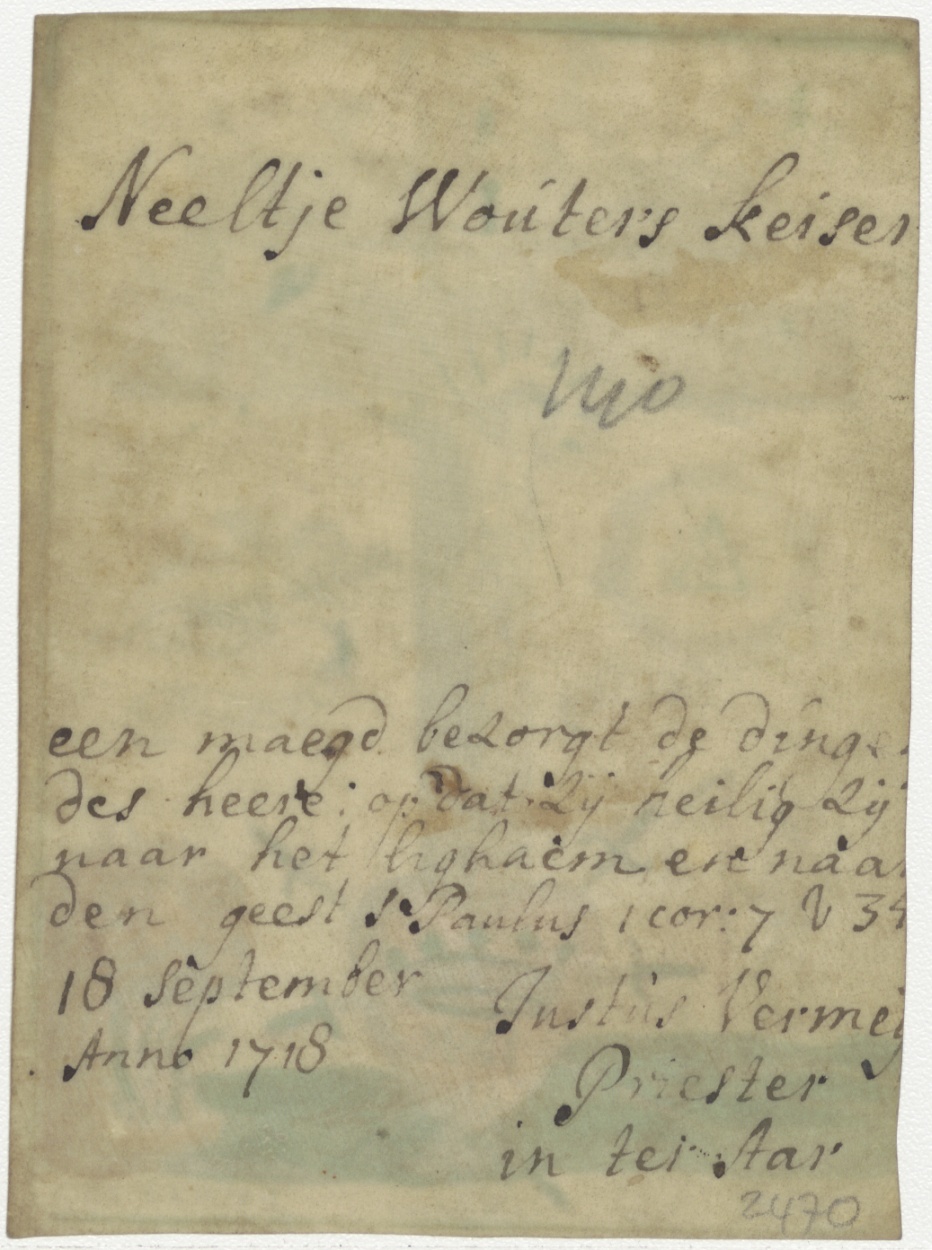 Neeltje Woúters keiser
een maegd bezorgt de dinge
des heere: op dat zij heilig zij
naar het lighaem en naa
den geest st Paulus 1 cor: 7 V 34
18 September
Anno 1718
Justùs Vermeij
Priester
in ter Aar
2470